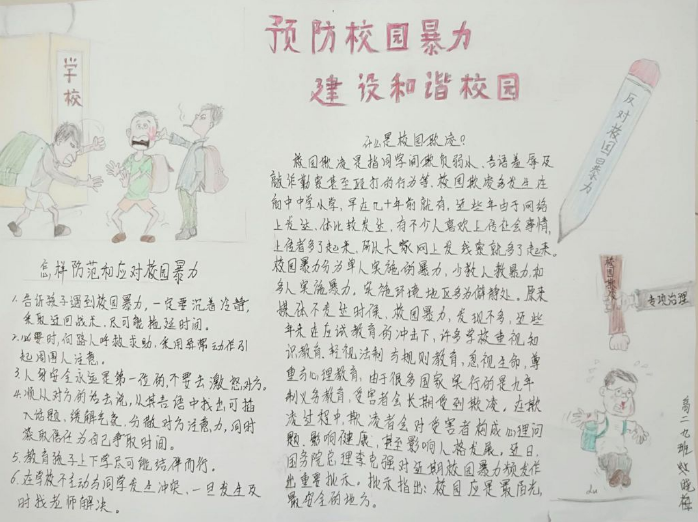 预防校园暴力
建设和谐校园
学校
反对校园暴力
什么是校园欺凌?
校园欺凌是指同学间欺负弱小、言语羞辱及
敲诈勒索甚至殴打的行为等,校园欺凌多发生在
初中中学小学,早在几十年前就有,这些年由于网络
上发达、体比较发达,有不少人喜欢上传社会事情,
上传者多了起来,所以大家网上发现案就多了起来。
校园暴力分为单人实施的暴力,少数人数暴力和
多人实施暴力,实施环境地区多为僻静处。原来
媒体不发达时候,校园暴力,发现不多,近些
年来在应试教育的冲击下,许多学校重视知
识教育,轻视法制
与规则教育,忽视生命,尊
重与心理教育,由于很多国家实行的是九年
制义务教育,受害者会长期受到欺凌,在欺
凌过程中,欺凌者会对受害者构成心理问
题,影响健康,甚至影响人格发展。近日,
国务院总理李克强对近期校园暴力频发作
出重要批示。批示指出:校园应是最阳光,
最安全的地方。
怎样防范和应对校园暴力
1.告诉孩子遇到校园暴力,一定要沉着冷静,
采取迂回战术,尽可能拖延时间。
2.必要时,向路人呼救求助,采用异常动作引
起周围人注意。
3.人身安全永远是第一位的,不要去激怒对方。
4.顺从对方的为去说,从其言语中找出可插
入话题,缓解气氛,分散对方注意力,同时
获取信任为自己争取时间。
5.教育孩子上下学尽可能结伴而行。
6.在学校不主动与同学发生冲突,一旦发生及
时找老师解决。
校园欺凌
专项治理
高二九班